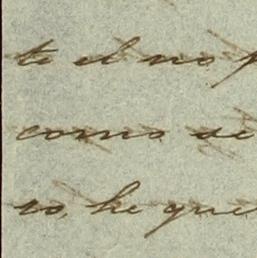 te el no p
como se
ro, he que